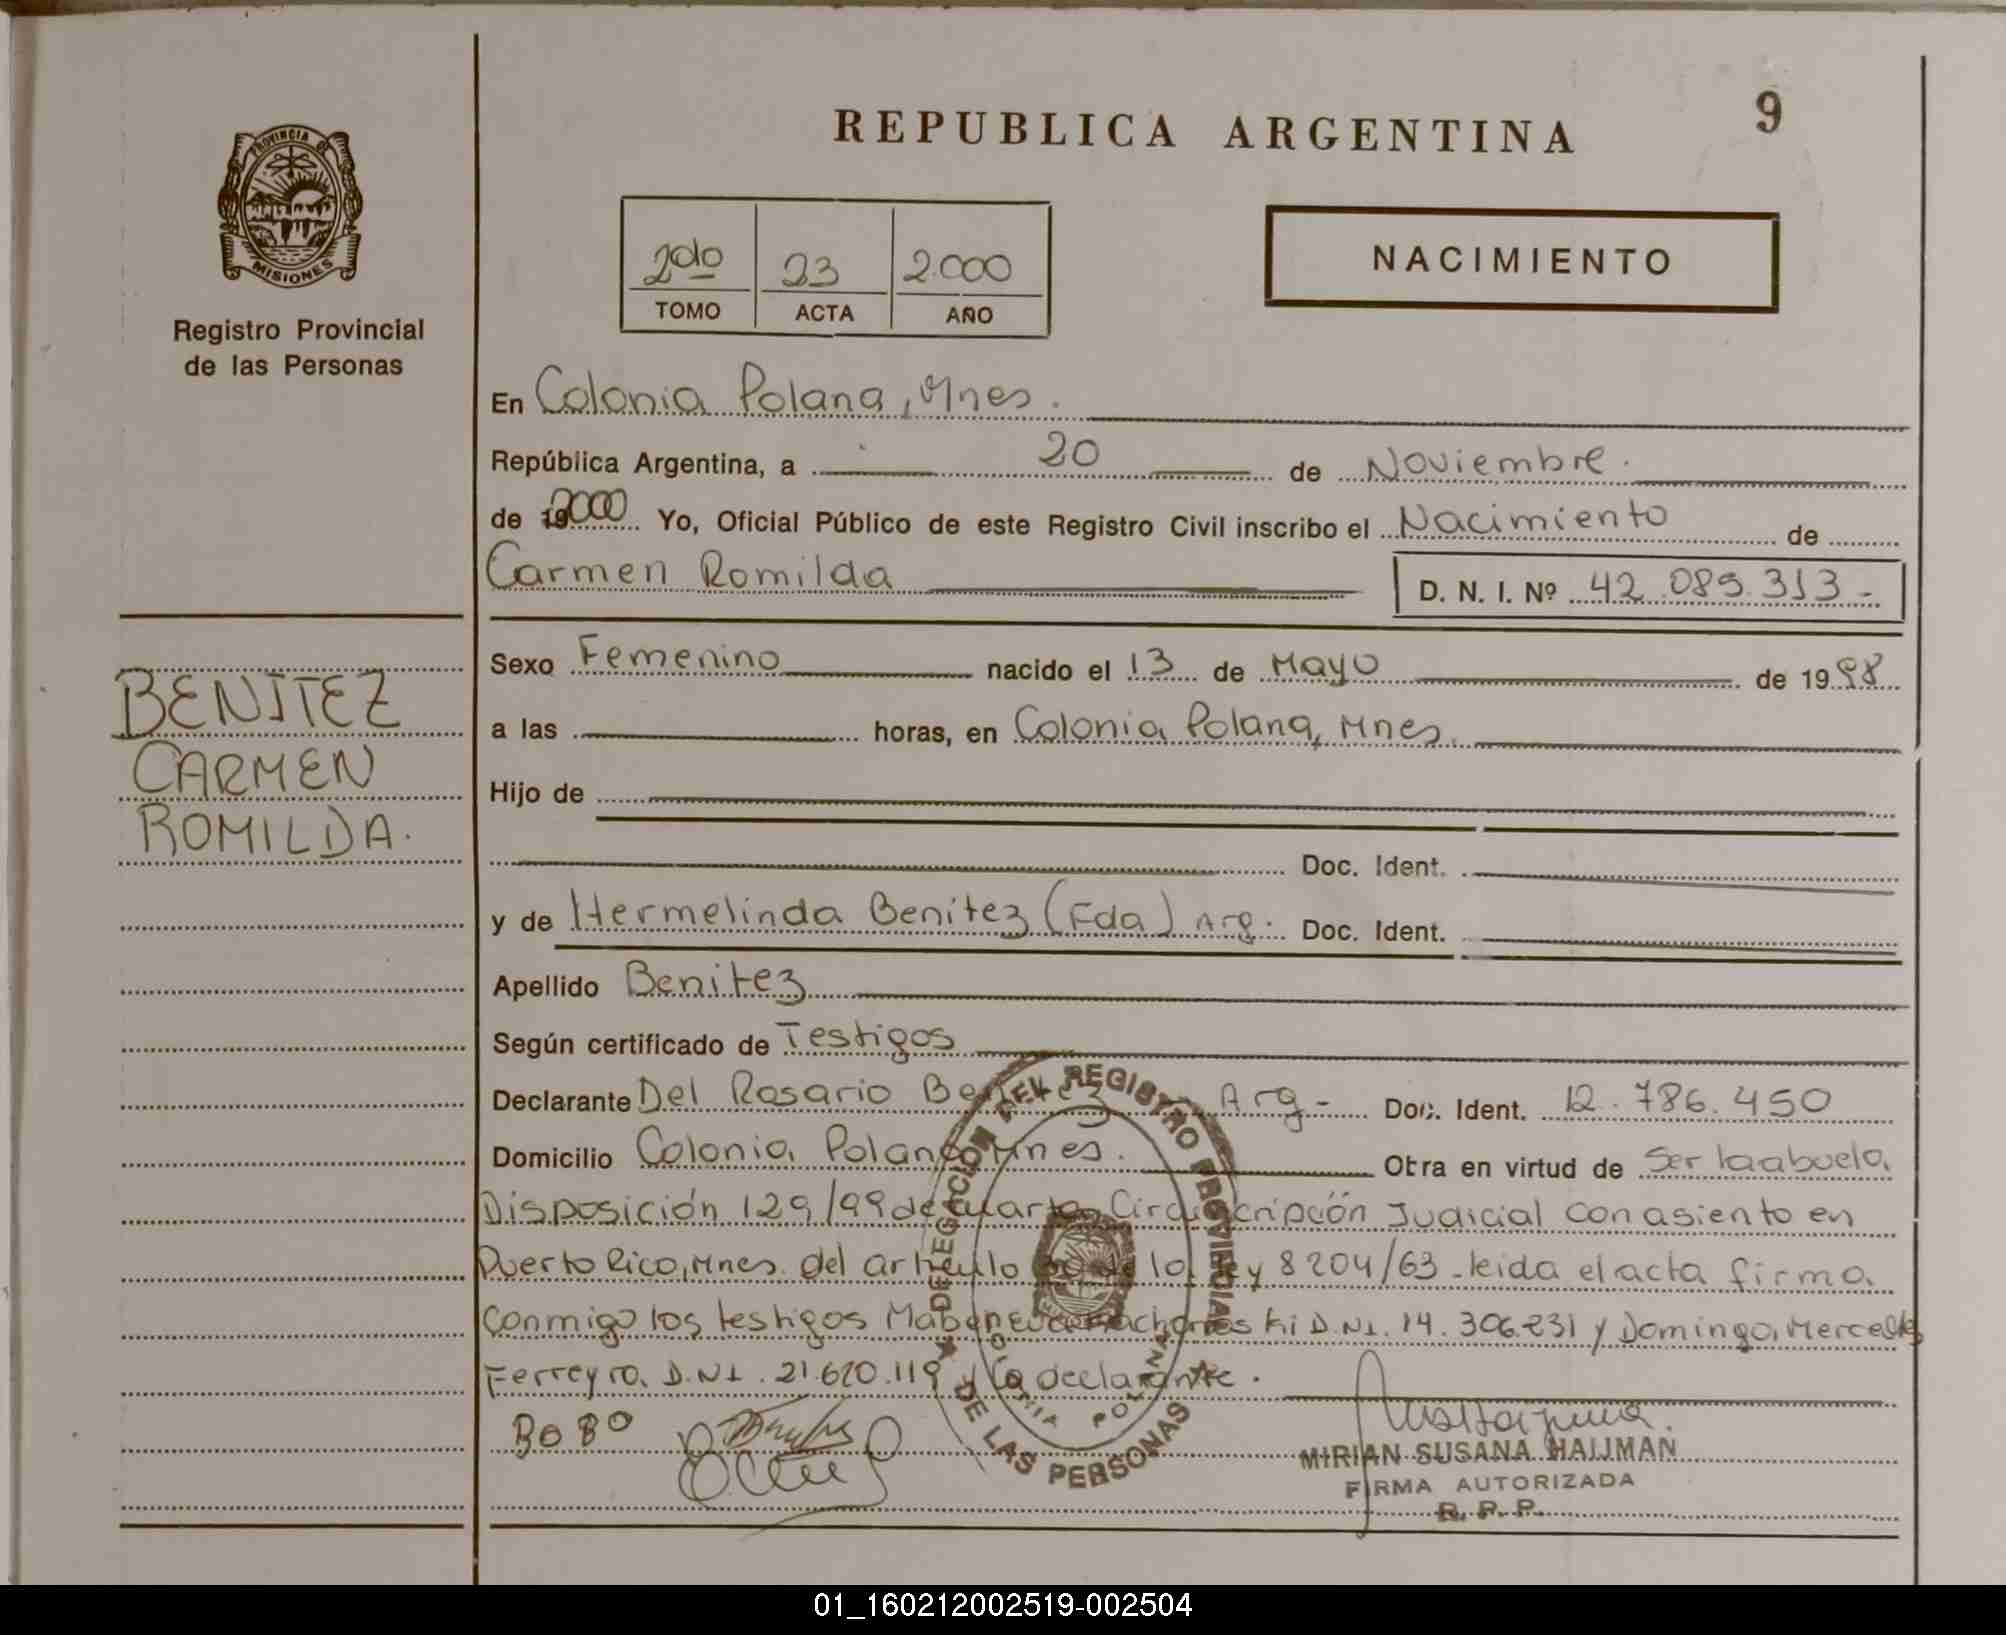 PROVINCIA DE
MISIONES
Registro Provincial
de las Personas
BENITEZ
CARMEN
ROMILDA.
REPUBLICA ARGENTINA
9
2do 23 2.000
TOMO ACTA AÑO
NACIMIENTO
En Colonia Polana, Mnes.
República Argentina, a 20 de Noviembre.
de 2000 Yo, Oficial Público de este Registro Civil inscribo el Nacimiento de
Carmen Romilda D. N. I. Nº 42.089.313-
Sexo Femenino nacido el 13 de Mayo de 1998
a las horas, en Colonia Polana, Mnes.
Hijo de
Doc. Ident.
y de Hermelinda Benitez (Fda) Arg. Doc. Ident.
Apellido Benitez
Según certificado de Testigos
Declarante Del Rosario Benitez Arg- Doc. Ident. 12.786.450
Domicilio Colonia Polana Mnes. Otra en virtud de Ser la abuela.
Disposición 129/99 de cuarta Circunscripción Judicial con asiento en
Puerto Rico, Mnes. del articulo la ley 8204/63 - leida el acta firma
conmigo los testigos D.N.I. 14.306.231 y Domingo, Mercedes
Ferreyra. D.N.I. 21.620.119 y la declarante.
DELEGACION DEL REGISTRO PROVINCIAL
DE LAS PERSONAS
COLONIA POLANA
MIRIAN SUSANA HAIJMAN
FIRMA AUTORIZADA
R. P. P.
01_160212002519-002504